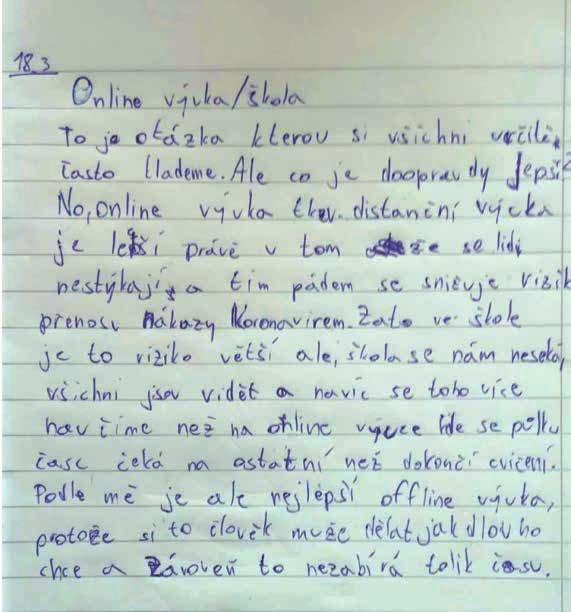 18.3
Online výuka/škola
To je otázka kterou si všichni určitě
často klademe. Ale co je doopravdy lepší?
No, online výuka tkzv. distanční výuka
je lepší právě v tom že se lidi
nestýkají, a tím pádem se snižuje rizik
přenosu nákazy Koronavirem. Zato ve škole
je to riziko větší ale, škola se nám neseká,
všichni jsou vidět a navíc se toho více
naučíme než na online výuce kde se půlku
času čeká na ostatní než dokončí cvičení.
Podle mě je ale nejlepší offline výuka,
protože si to člověk muže dělat jak dlouho
chce a zároveň to nezabírá tolik času.